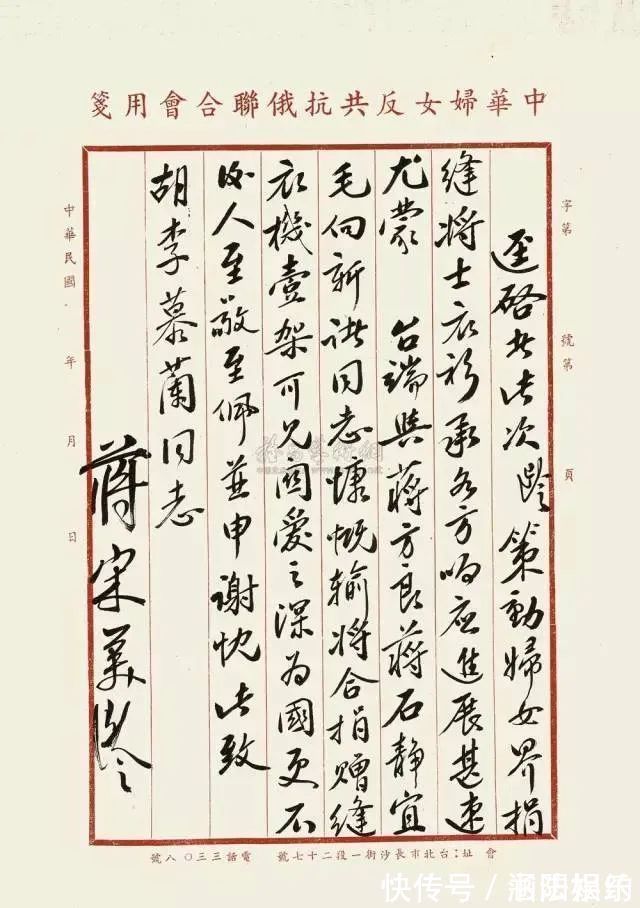 中華婦女反共抗俄聯合會用箋
字第 號第 頁
迳啓者此次齡策動婦女界捐
縫将士衣衫承各方响应進展甚速
尤蒙 台端與蔣方良蔣石静宜
毛向新諸同志慷慨输将合捐赠縫
衣機壹架可見關愛之深為國更不
後人至敬至佩並申謝忱此致
胡李慕蘭同志
蔣宋美齡
中華民國 年 月 日
會址：台北市長沙街一段二十七號 電話三三〇八號
快传号 /